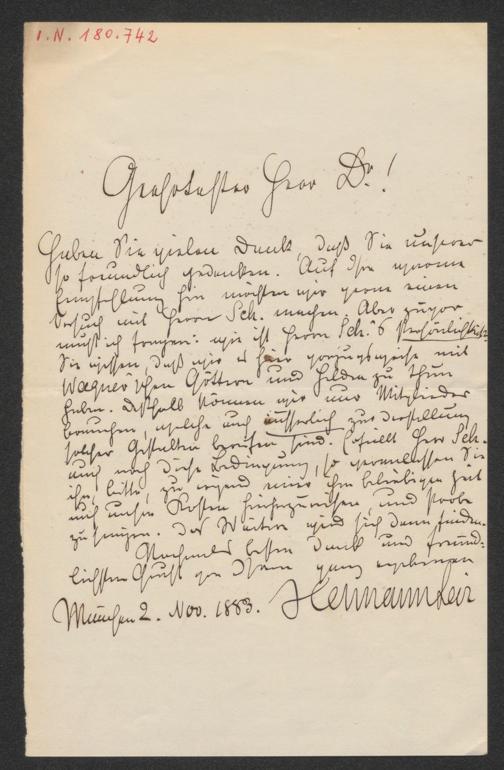 I.N. 180.742
Geehrtester Herr Dr.!
Haben Sie vielen Dank, daß Sie unserer
so freundlich gedenken. Auf Ihre warme
Empfehlung hin möchten wir gerne einen
Versuch mit Herrn Sch. machen. Aber zuvor
muß ich fragen: wie ist Herrn Sch.'s Persönlichkeit?
Sie wissen, daß wir es hier vorzugsweise mit
Wagner'schen Göttern und Helden zu thun
haben. Deshalb können wir nur Mitglieder
brauchen, welche auch äusserlich zur Darstellung
solcher Gestalten berufen sind. Erfüllt Herr Sch.
auch noch diese Bedingung, so veranlassen Sie
ihn, bitte, zu irgend einer ihm beliebigen Zeit
auf unsere Kosten hierherzureisen, und Probe
zu singen. Das Weitere wird sich dann finden.
Nochmals besten Dank und freund-
lichsten Gruß von Ihrem ganz ergebenen
München 2. Nov. 1883. Hermann Levi